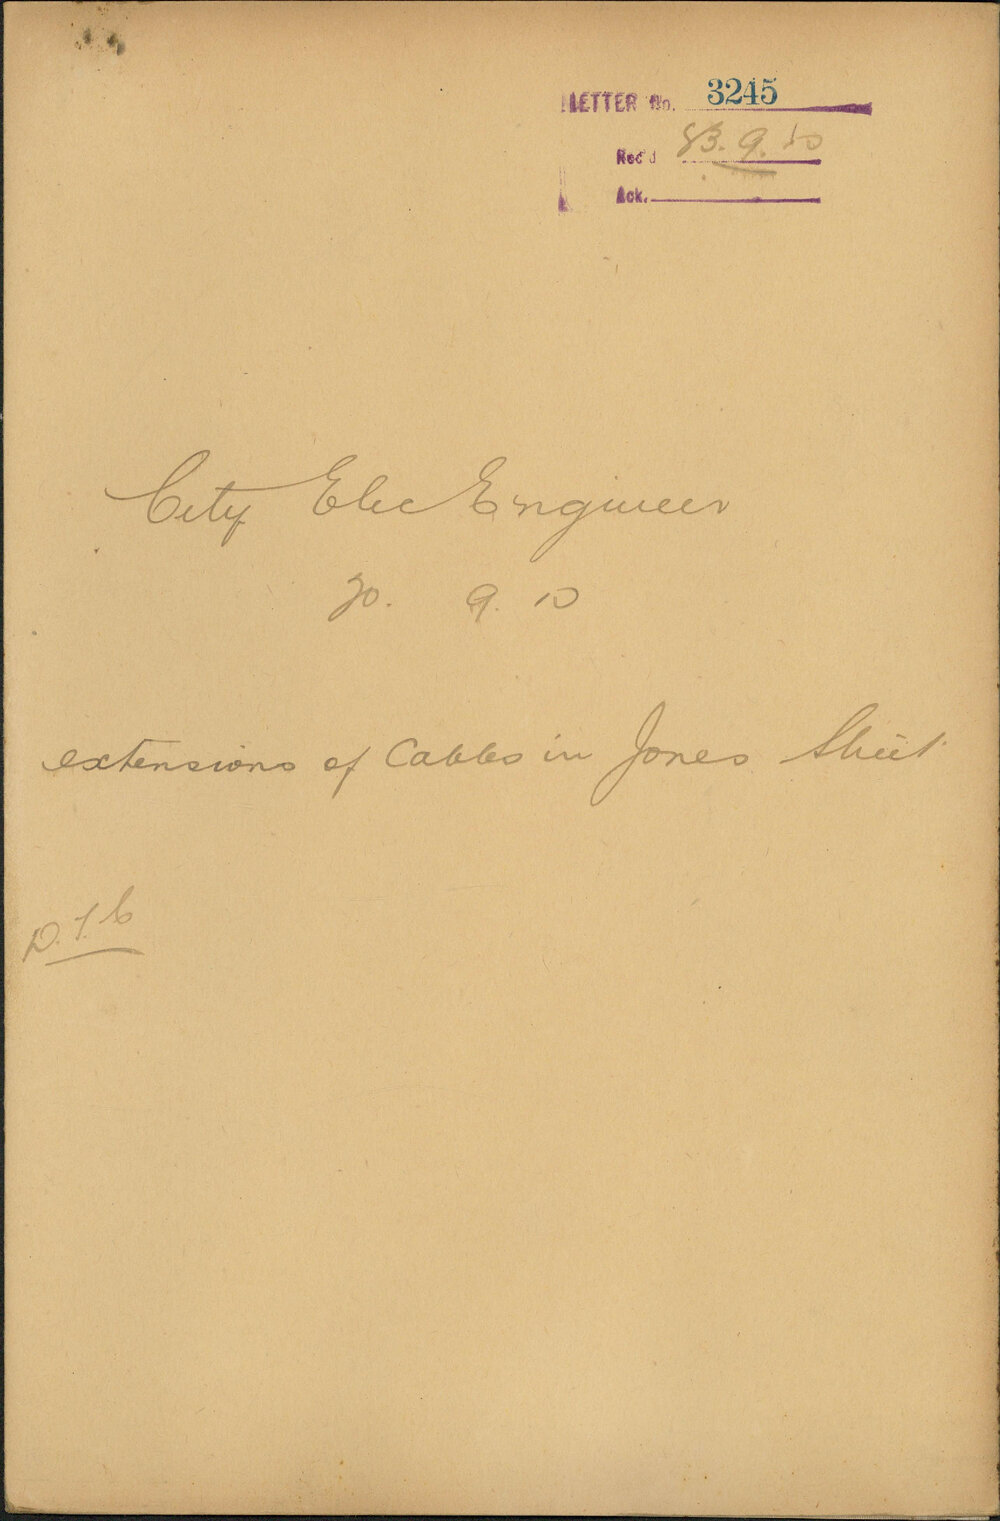 LETTER No. 3245
Rec'd 9.10
Ack.
City Elec Engineer
20. 9. 10
extensions of Cables in Jones Street